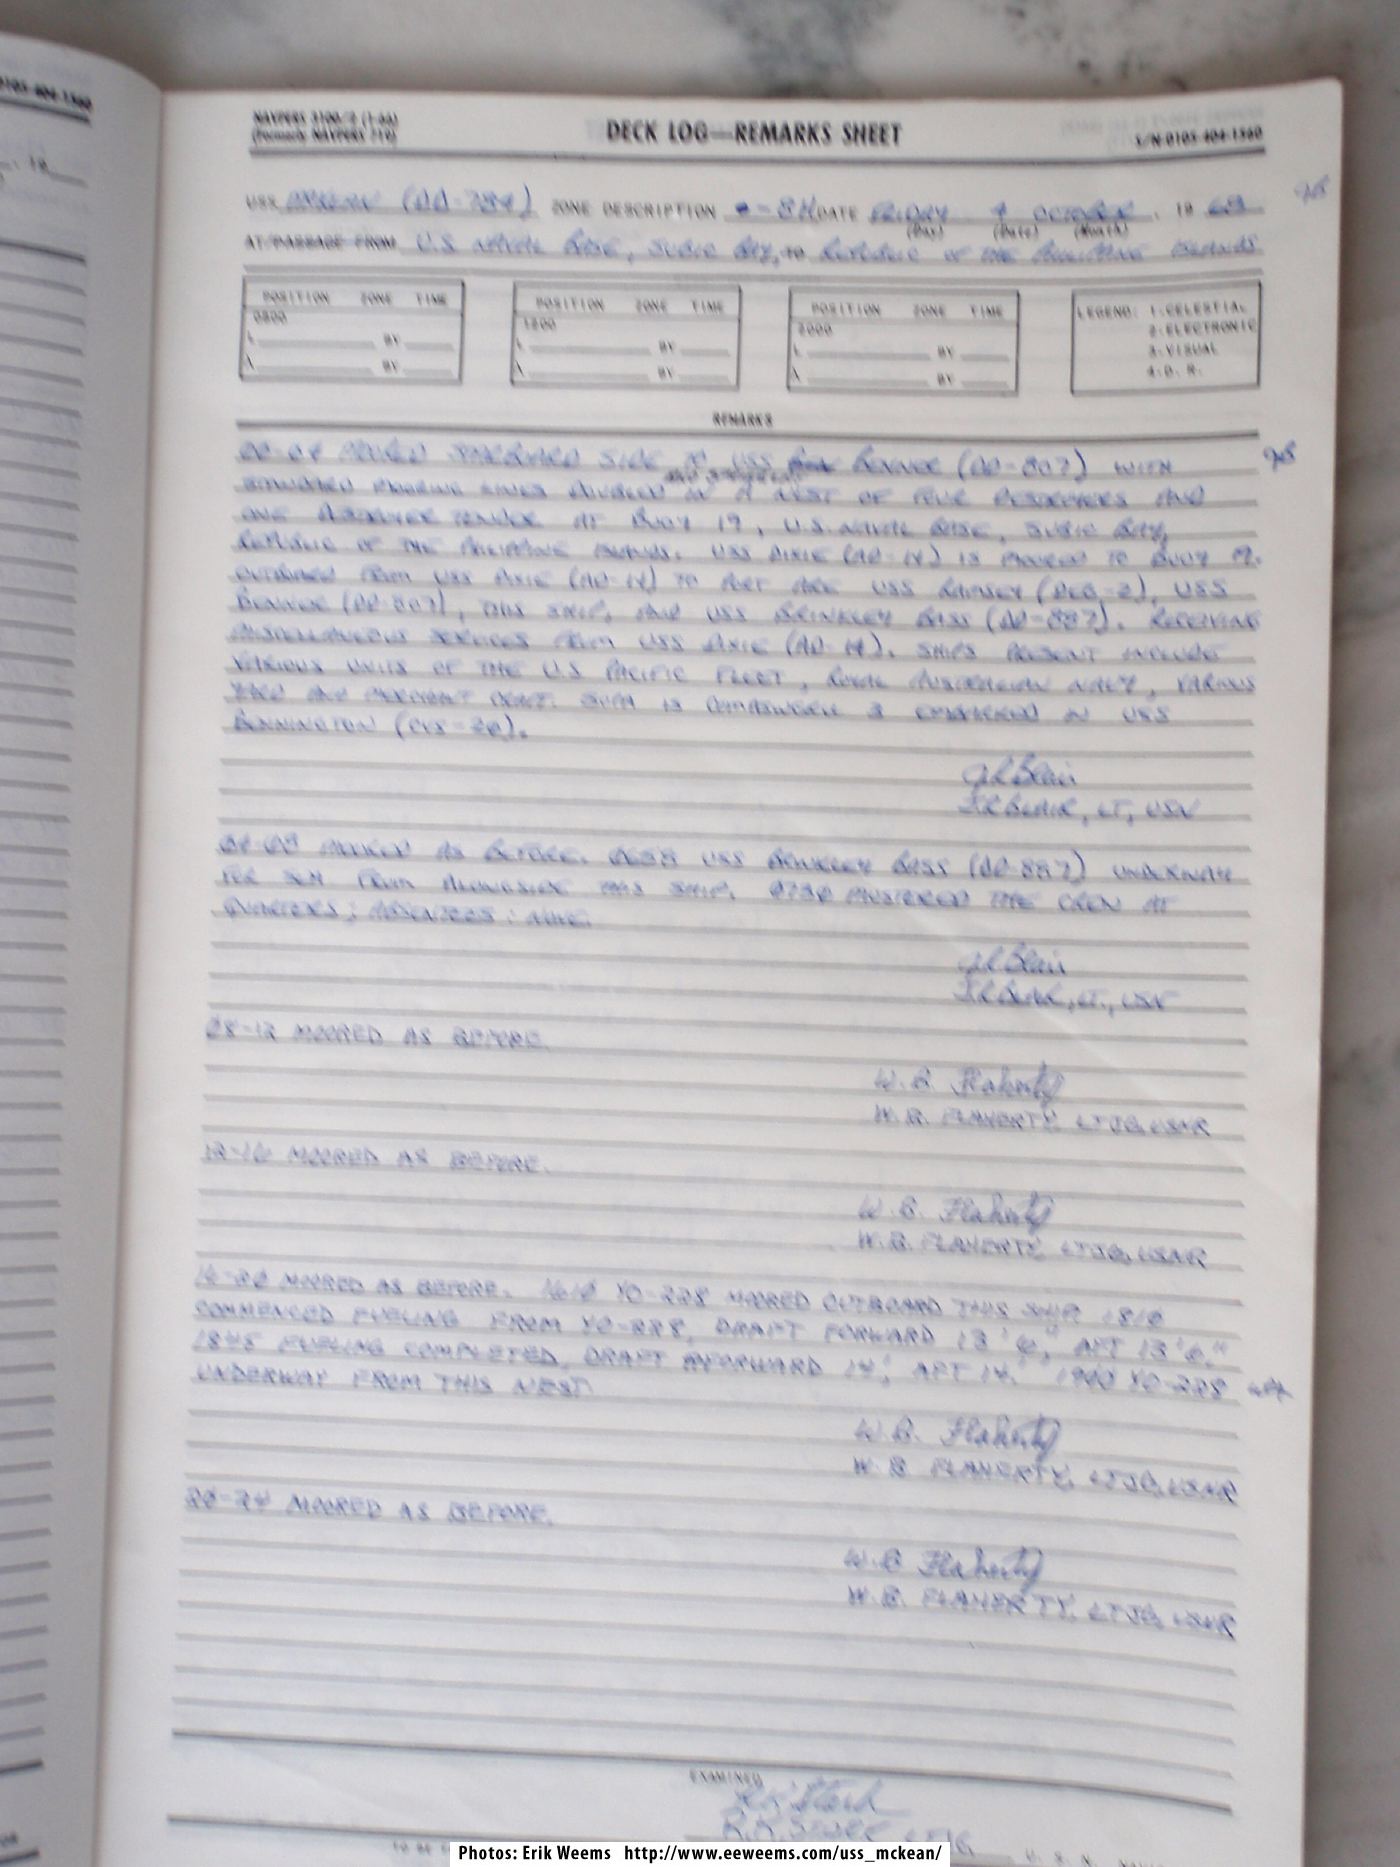 0105-404-1560
, 19
NAVPERS 3100/2 (1-66)
(Formerly NAVPERS 719)
DECK LOG—REMARKS SHEET
S/N-0105-404-1560
USS MCKEAN (DD-784) ZONE DESCRIPTION -8H DATE FRIDAY 4 OCTOBER, 19 68
(Day) (Date) (Month)
AT/PASSAGE FROM U.S. NAVAL BASE, SUBIC BAY, TO REPUBLIC OF THE PHILIPPINE ISLANDS
POSITION ZONE TIME
0800
L BY
λ BY
POSITION ZONE TIME
1200
L BY
λ BY
POSITION ZONE TIME
2000
L BY
λ BY
LEGEND: 1-CELESTIAL
2-ELECTRONIC
3-VISUAL
4-D. R.
REMARKS
00-04 MOORED STARBOARD SIDE TO USS BENNER (DD-807) WITH
STANDARD MOORING LINES DOUBLED IN A NEST OF FOUR DESTROYERS AND
ONE DESTROYER TENDER AT BUOY 19, U.S. NAVAL BASE, SUBIC BAY,
REPUBLIC OF THE PHILIPPINE ISLANDS. USS DIXIE (AD-14) IS MOORED TO BUOY 19.
OUTBOARD FROM USS DIXIE (AD-14) TO PORT ARE USS RAMSEY (DEG-2), USS
BENNER (DD-807), THIS SHIP, AND USS BRINKLEY BASS (DD-887). RECEIVING
MISCELLANEOUS SERVICES FROM USS DIXIE (AD-14). SHIPS PRESENT INCLUDE
VARIOUS UNITS OF THE U.S PACIFIC FLEET, ROYAL AUSTRALIAN NAVY, VARIOUS
YARD AND MERCHANT CRAFT. SOPA IS COMASWGRU 3 EMBARKED IN USS
BENNINGTON (CVS-20).
J R Blair
J.R BLAIR, LT, USN
04-08 MOORED AS BEFORE. 0658 USS BRINKLEY BASS (DD-887) UNDERWAY
FOR SEA FROM ALONGSIDE THIS SHIP. 0730 MUSTERED THE CREW AT
QUARTERS; ABSENTEES: NONE.
J R Blair
J.R BLAIR, LT., USN
08-12 MOORED AS BEFORE.
W. B. Flaherty
W. B. FLAHERTY, LTJG, USNR
12-16 MOORED AS BEFORE.
W. B. Flaherty
W. B. FLAHERTY, LTJG, USNR
16-20 MOORED AS BEFORE. 1610 YO-228 MOORED OUTBOARD THIS SHIP. 1810
COMMENCED FUELING FROM YO-228, DRAFT FORWARD 13'6", AFT 13'6."
1845 FUELING COMPLETED, DRAFT FORWARD 14', AFT 14.' 1900 YO-228
UNDERWAY FROM THIS NEST
W. B. Flaherty
W. B. FLAHERTY, LTJG, USNR
20-24 MOORED AS BEFORE.
W. B Flaherty
W. B. FLAHERTY, LTJG, USNR
EXAMINED
LTJG
Photos: Erik Weems http://www.eeweems.com/uss_mckean/